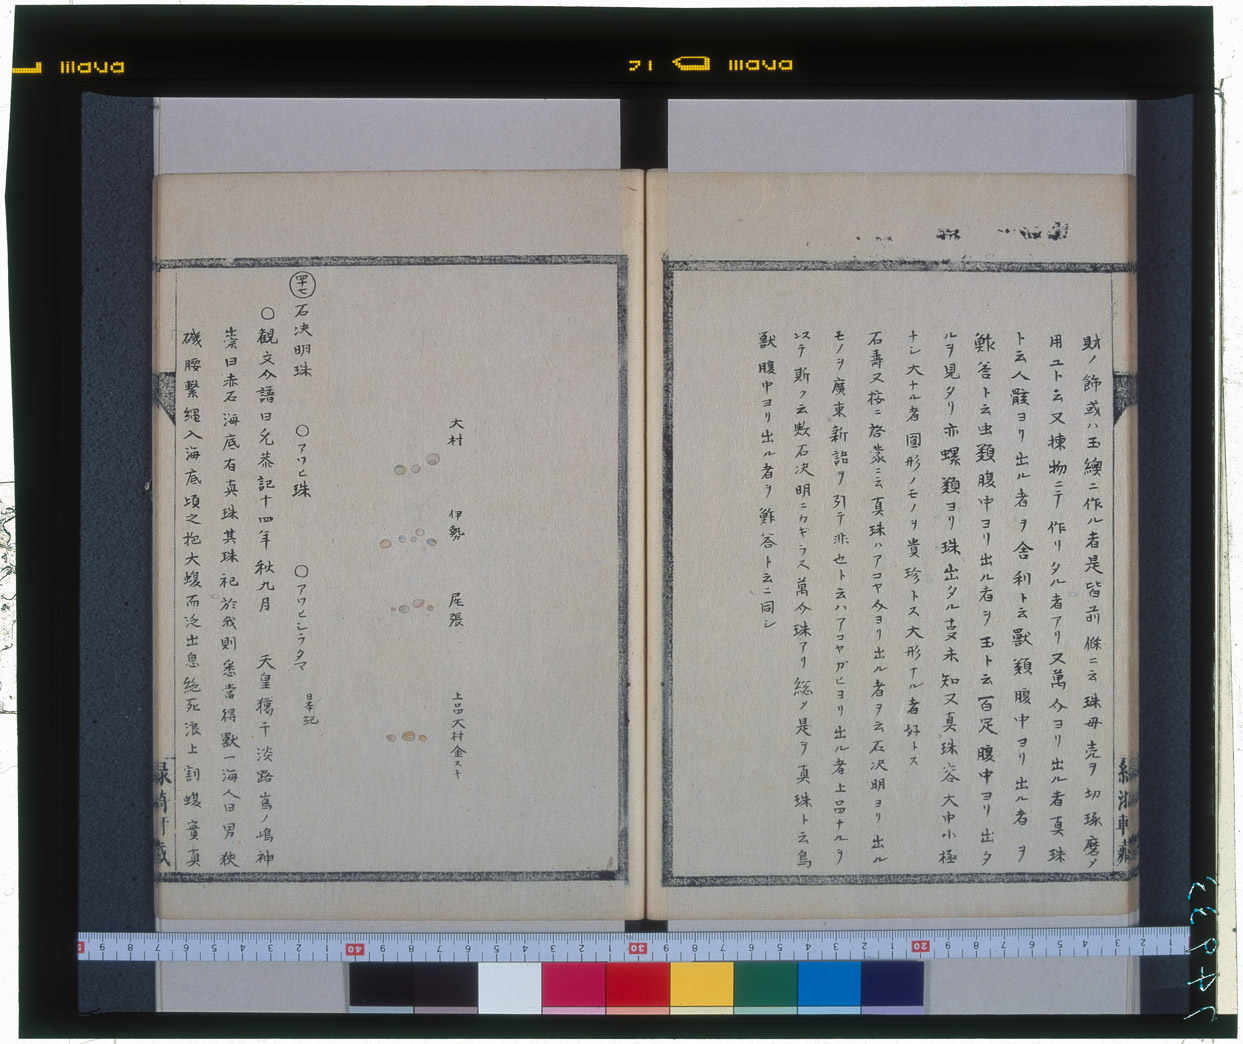 財ノ飾或ハ玉纓ニ作ル者是皆前條ニ云珠母売ヲ切琢磨メ
用ユト云又揀物ニテ作リタル者アリ又萬今ヨリ出ル者真珠
ト云人骸ヨリ出ル者ヲ舎利ト云獣類腹中ヨリ出ル者ヲ
鮓荅ト云虫類腹中ヨリ出ル者ヲ玉ト云百足腹中ヨリ出タ
ルヲ見タリ亦螺類ヨリ珠出タル未知又真珠大中小極
ナシ大ナル者圓形ノモノヲ貴珍トス大形ナル者好トス
石壽又按ニ啓蒙ニ云真珠ハアコヤ今ヨリ出ル者ヲ云石決明ヨリ出ル
モノヲ廣東新語ヲ引テ非也ト云ハアコヤガヒヨリ出ル者上品ナルヲ
以テ斯ク云歟石決明ニカギラス萬今珠アリ総メ是ヲ真珠ト云鳥
獣腹中ヨリ出ル者ヲ鮓荅ト云ニ同シ
大村 伊勢 尾張 上品大村金スキ
四十七 石决明珠 ○アワヒ珠 ○アワヒシラタマ 日本紀
○観文介譜曰允恭記十四年秋九月 天皇獵于淡路嶌ノ嶋神
祟曰赤石海底有真珠其珠祀於我則悉當得獣一海人曰男狭
磯腰繋縄入海底頃之抱大蝮而泛出息絶死浪上割蝮實真
緑漪軒蔵
緑漪軒蔵
71